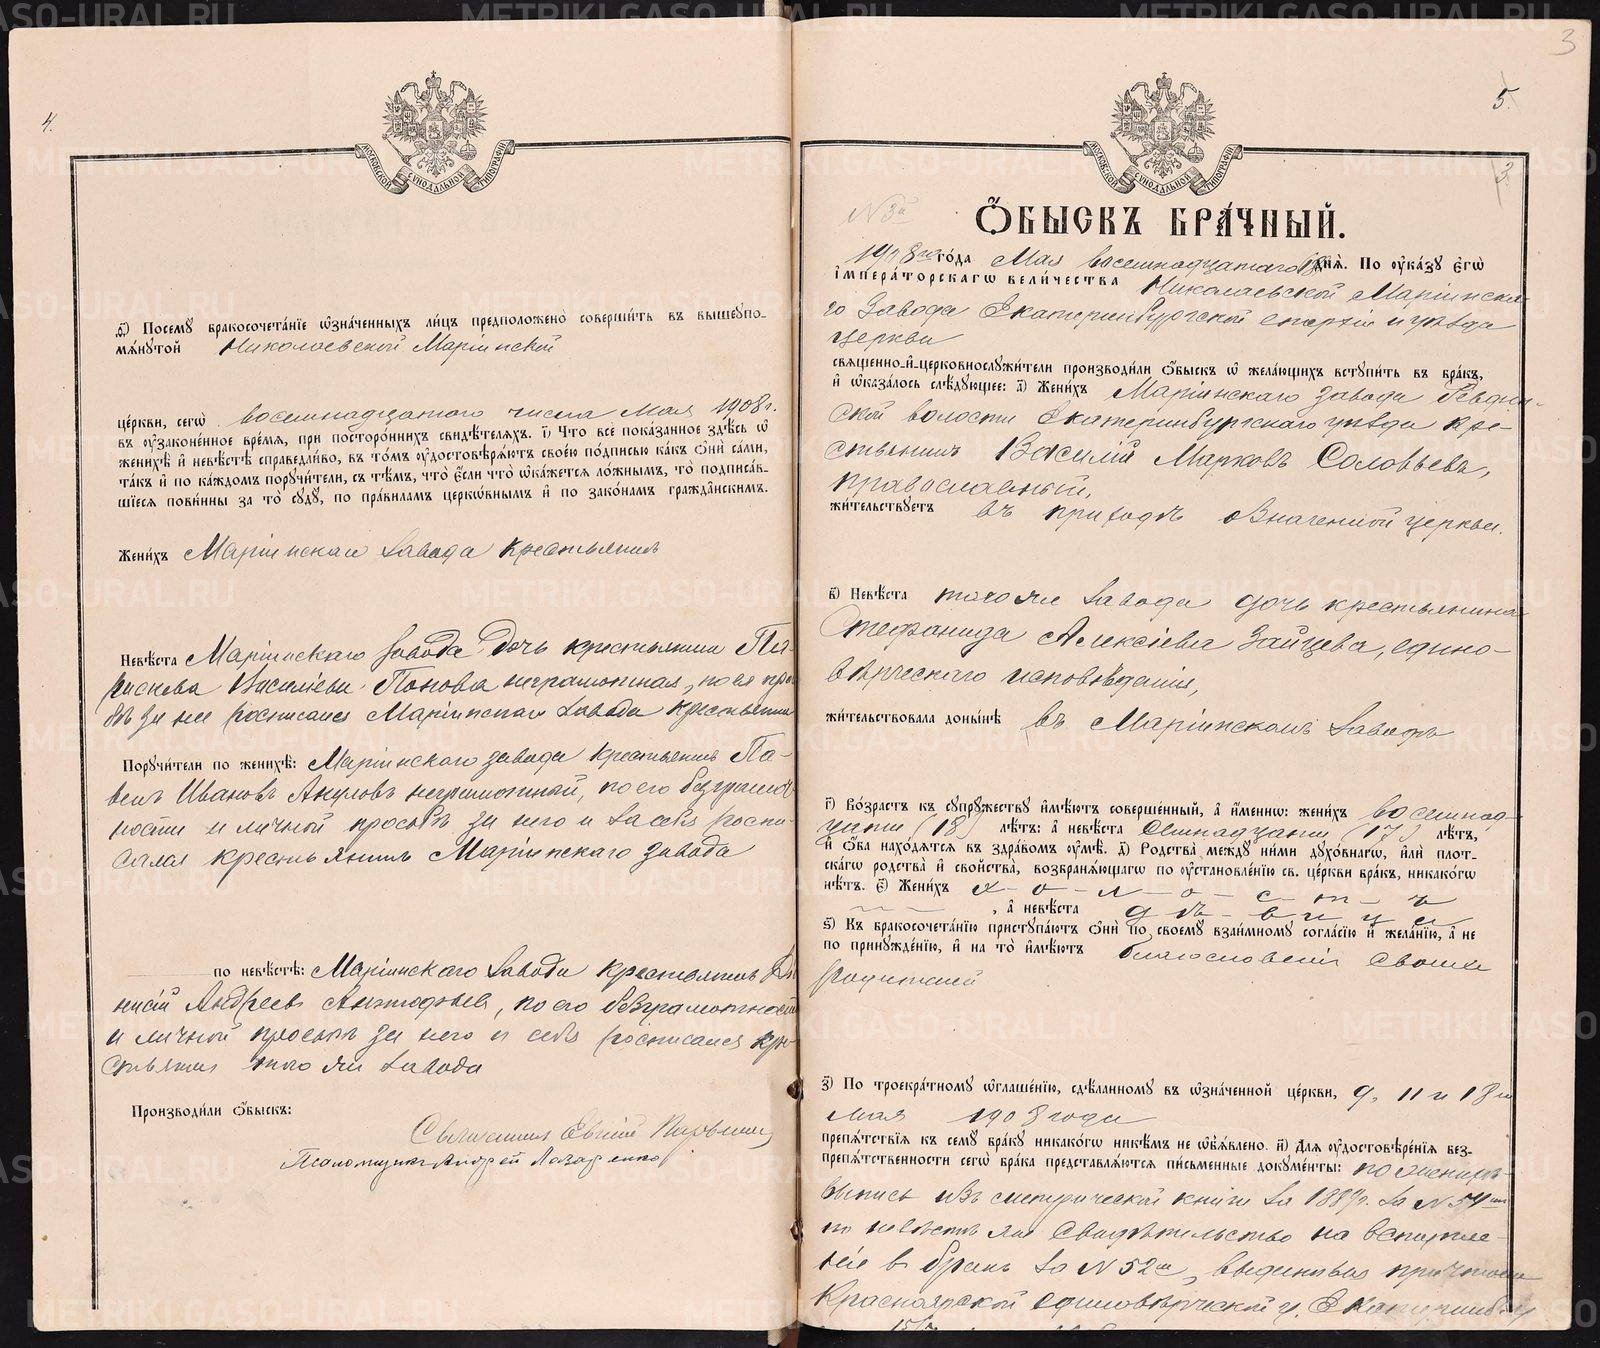 4.
МОСКОВСКОЙ СѴНОДАЛЬНОЙ ТИПОГРАФІИ
д҃) Посему бракосочетаніе ѡзначенныхъ лицъ предположено совершить въ вышеупо-
мѧнутой Николаевской Маріинской
церкви, сегѡ восемнадцатого числа Мая 1908 г.
въ узаконенное времѧ, при постороннихъ свидѣтелѧхъ. і҃) Что все показанное здѣсь ѡ
женихѣ и невѣстѣ справедливо, въ томъ удостовѣрѧютъ своею подписью какъ ѻни сами,
такъ и по каждомъ поручители, съ тѣмъ, что если что ѡкажетсѧ ложнымъ, то подписав-
шіесѧ повинны за то суду, по правиламъ церкѡвнымъ и по законамъ гражданскимъ.
Женихъ Маріинскаго завода крестьянинъ
Невѣста Маріинскаго Завода дочь крестьянина
Василіева Попова неграмотная, по ея прос
бѣ за нее росписался Маріинскаго завода крестьянин
Поручители по женихѣ: Маріинскаго завода крестьянинъ Па-
велъ Ивановъ Акуловъ неграмотный, по его безграмот
ности и личной просьбѣ за него и за себя роспи-
сался крестьянинъ Маріинскаго завода
по невѣстѣ: Маріинскаго завода крестьянинъ
Андреевъ по его безграмотности
и личной просьбѣ за него и себя росписался кре-
стьянин того же завода
Производили ѻбыскъ:
Священникъ Евгеній
Псаломщикъ Андрей Лазаренко
3
5.
3
МОСКОВСКОЙ СѴНОДАЛЬНОЙ ТИПОГРАФІИ
N 3й
ѺБЫСКЪ БРАЧНЫЙ.
1908го года Мая восемнадцатаго 18 днѧ. По указу егѡ
императорскагѡ величества Николаевской Маріинска-
го Завода Екатеринбургской епархіи и уѣзда
церкви
свѧщенно-и-церковнослужители производили ѻбыскъ ѡ желающихъ вступить въ бракъ,
и ѡказалось слѣдующее: а҃) Женихъ Маріинскаго завода Ревдин-
ской волости Екатеринбургскаго уѣзда кре-
стьянинъ Василій Марковъ Соловьевъ,
православный,
жительствуетъ въ приходѣ означенной церкви.
в҃) Невѣста того же завода дочь крестьянина
Стефанида Алексіева Зайцева, едино-
вѣрческаго исповѣданія,
жительствовала донынѣ въ Маріинскомъ заводѣ
г҃) Возрастъ къ супружеству имѣютъ совершенный, а именнѡ: женихъ восемнад-
цати (18) лѣтъ: а невѣста семнадцати (17) лѣтъ,
и ѻба находѧтсѧ въ здравомъ умѣ. д҃) Родства между ними духовнагѡ, или плот-
скагѡ родства и свойства, возбранѧющагѡ по установленію св. церкви бракъ, никакогѡ
нѣтъ. є҃) Женихъ х-о-л-о-с-т-ъ
, а невѣста д-ѣ-в-и-ц-а
ѕ҃) Къ бракосочетанію приступаютъ ѻни по своему взаимному согласію и желанію, а не
по принужденію, и на то имѣютъ благословеніе своихъ
родителей
з҃) По троекратному ѡглашенію, сдѣланному въ ѡзначенной церкви, 9, 11 и 18го
Мая 1908 года
препѧтствія къ сему браку никакогѡ никѣмъ не ѡб̾ѧвлено. и҃) Для удостовѣренія без-
препѧтственности сегѡ брака представлѧютсѧ письменные документы: по женихѣ-
выпись изъ метрической книги за 1889 г. за N 54м
по невѣстѣ же свидѣтельство на вступле-
ніе въ бракъ за N 52м, выданное причтомъ
Красноярской единовѣрческой ц. Екатеринбур